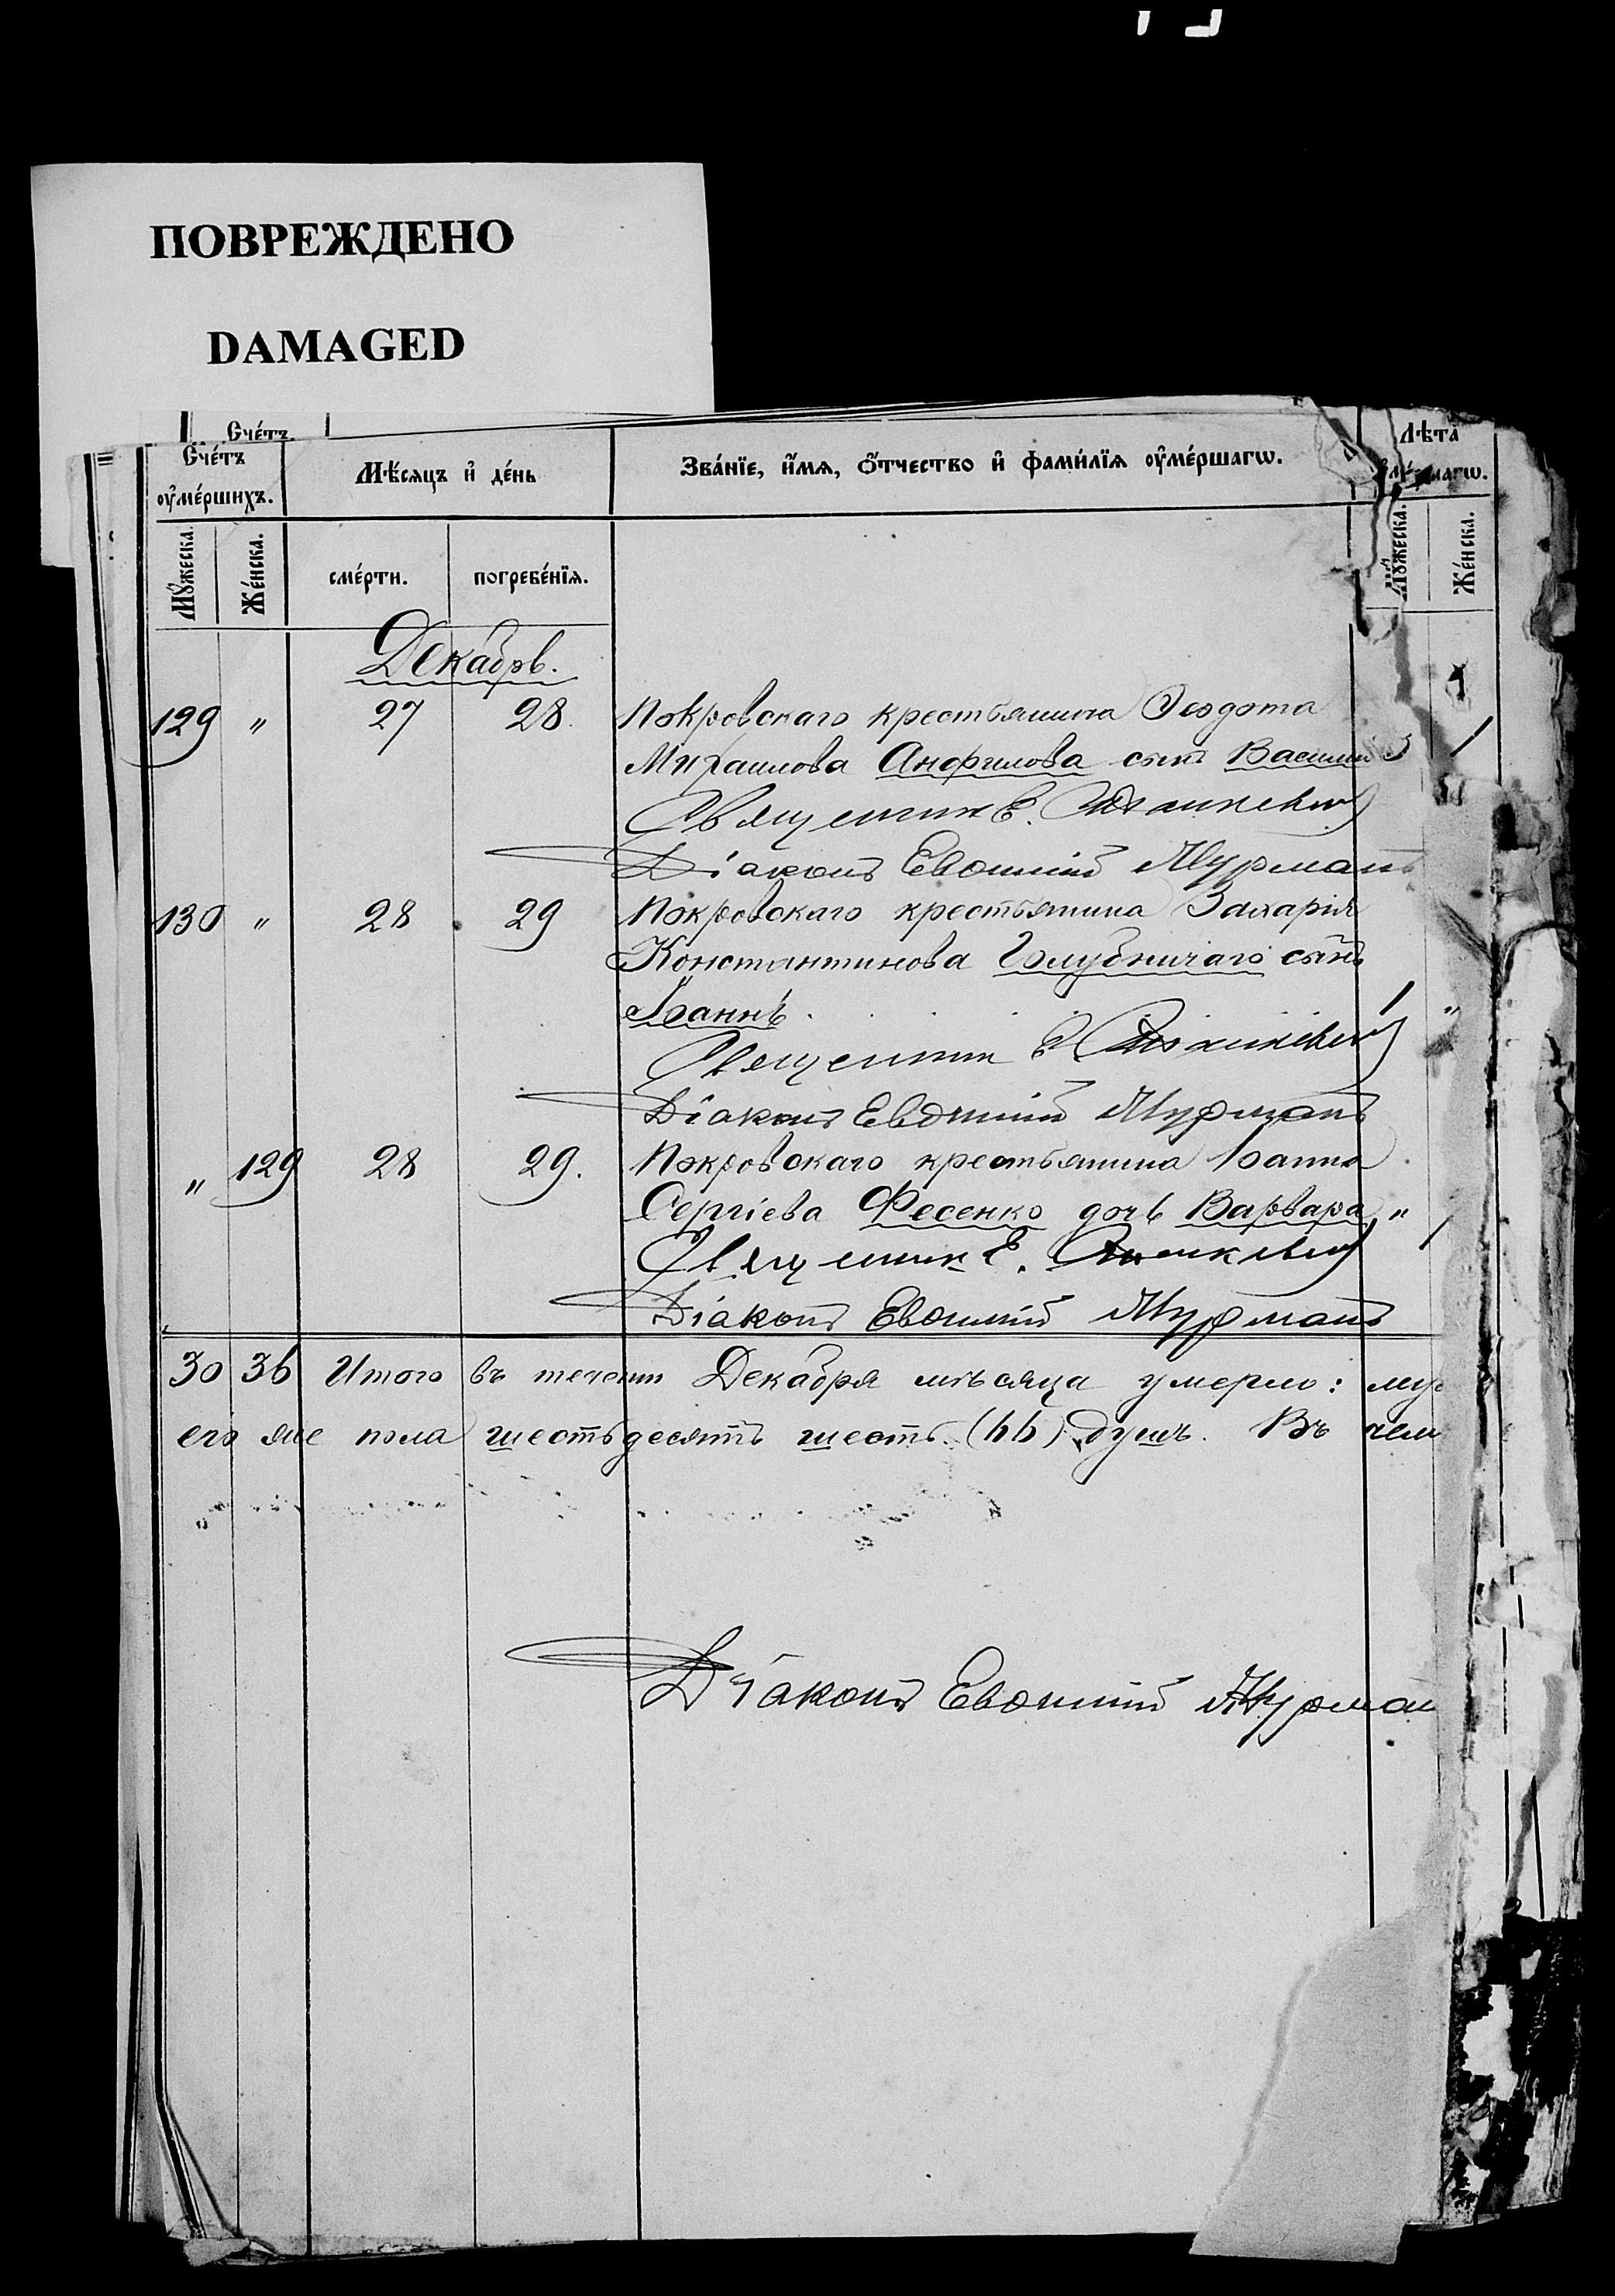 ПОВРЕЖДЕНО
DAMAGED
Счéтъ
Счéтъ
оумéршихъ.
Мѣсяцъ и дéнь
Звáнїе, имя, óтчество и фамилїя оумéршагѡ.
Лѣта
Мужеска.
Жéнска.
смéрти.
погребéнїя.
Мужеска.
Жéнска.
Декабрь.
129 " 27 28. Покровскаго крестьянина Ѳеодота
Михаилова Анфилова сынъ Василій 3
Священник Е.
Діаконъ Евѳимій Мурманъ
130 " 28 29 Покровскаго крестьянина Захарія
Константинова Голубничаго сынъ
Іоаннъ 1 "
Священник Е
Діаконъ Евѳимій Мурманъ
" 129 28 29. Покровскаго крестьянина Іоанна
Сергіева Фесенко дочь Варвара " 1
Священник Е.
Діаконъ Евѳимій Мурманъ
30 36 Итого въ течении Декабря мѣсяца умерло:
пола шестьдесятъ шесть (66) душъ. Въ чем
Діаконъ Евѳимій Мурман